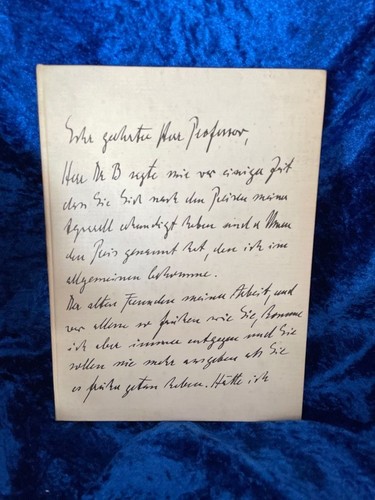 Sehr geehrter Herr Professor,
Herr Dr. B sagte mir vor einiger Zeit
dass Sie Sich nach den Preisen meiner
Aquarelle erkundigt haben und er Ihnen
den Preis genannt hat, den ich im
allgemeinen bekomme.
Den alten Freunden meiner Arbeit, und
vor allem so frühen wie Sie, komme
ich aber immer entgegen und Sie
sollen nie mehr ausgeben als Sie
es früher getan haben. Hätte ich